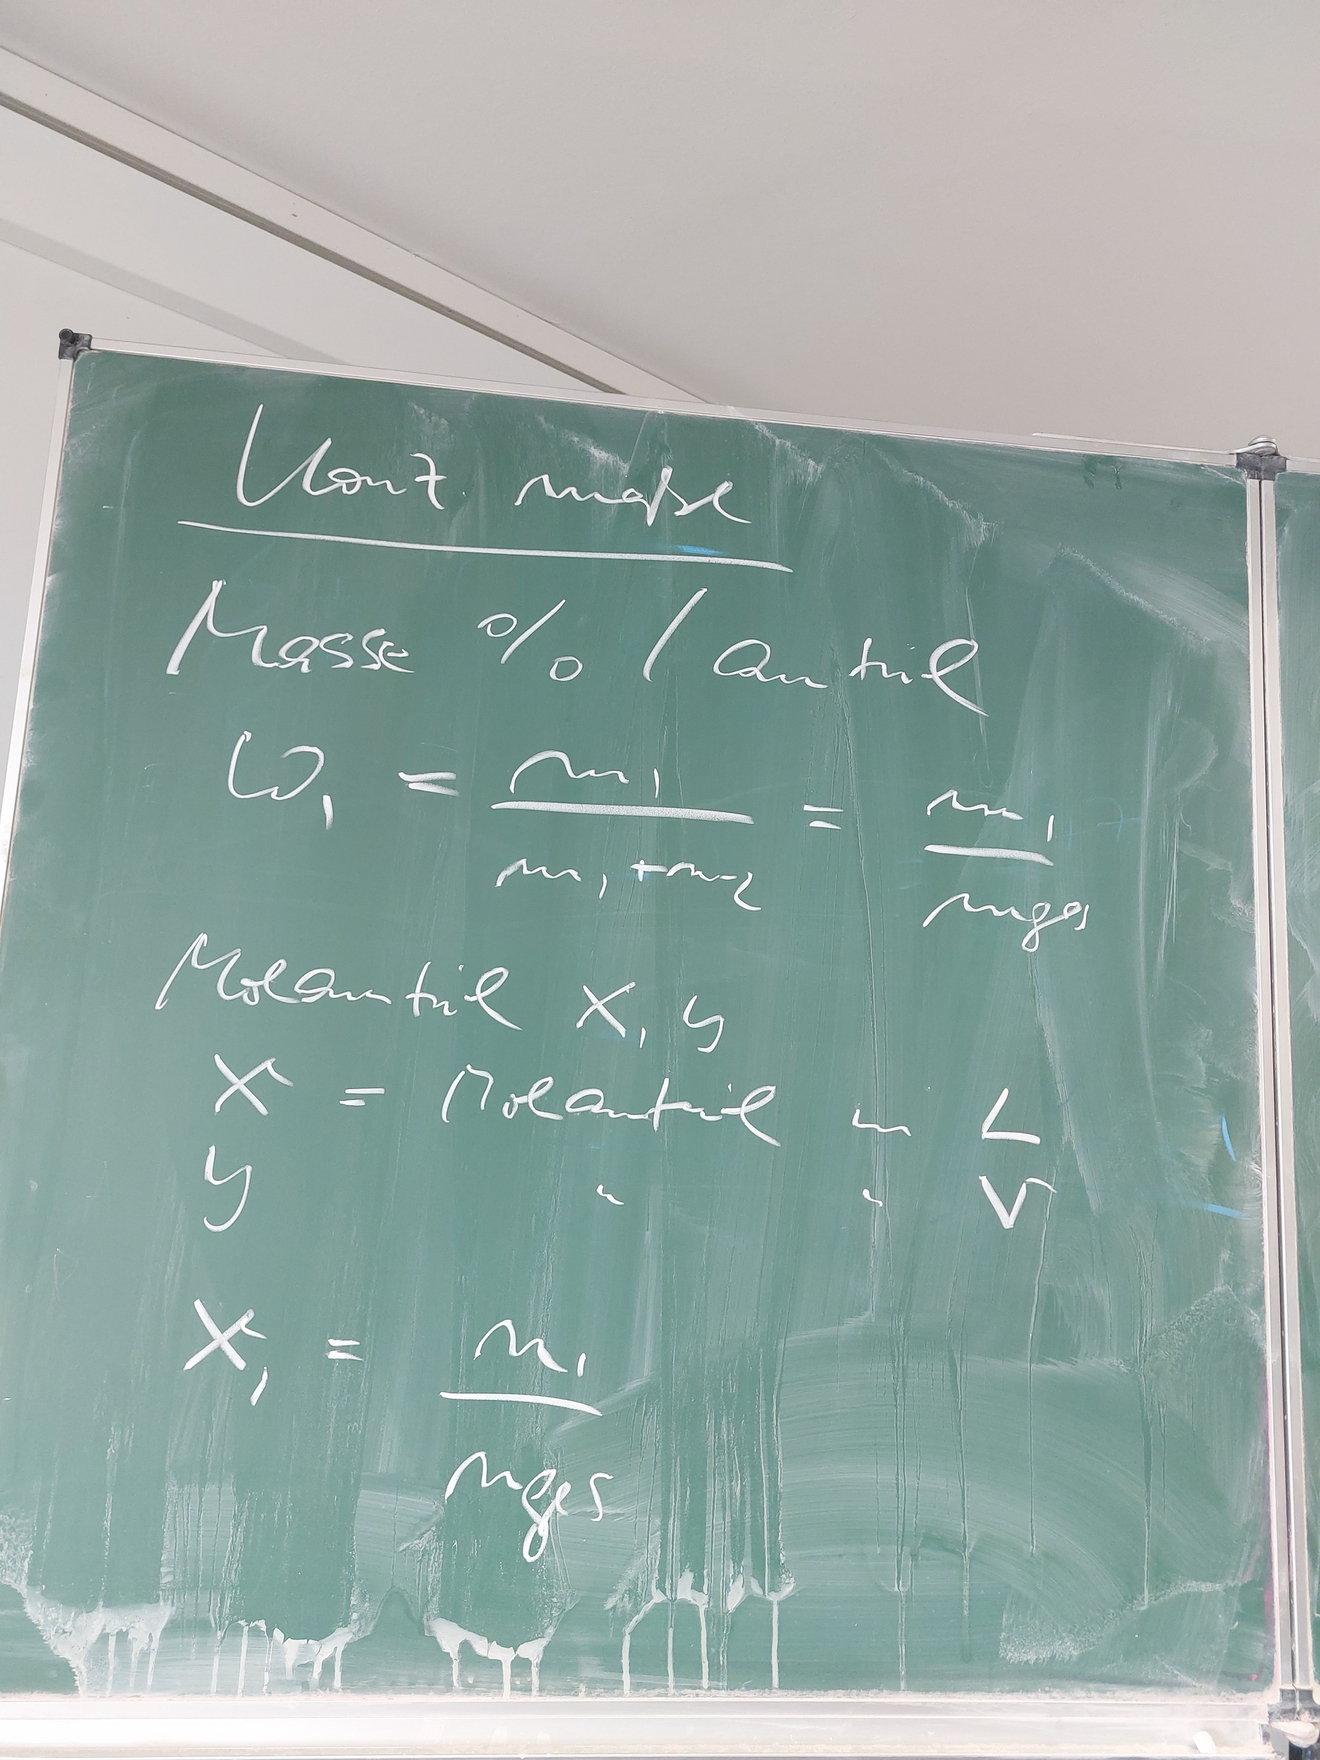 Konz. maße
Masse % / anteil
ω₁ = m₁ / (m₁ + m₂) = m₁ / mges
Molanteil x, y
x = Molanteil in L
y " " V
x₁ = n₁ / nges